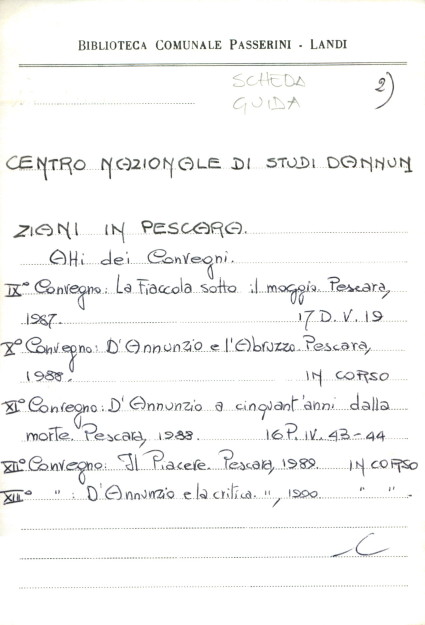 BIBLIOTECA COMUNALE PASSERINI - LANDI
SCHEDA 2)
GUIDA
CENTRO NAZIONALE DI STUDI DANNUN
ZIANI IN PESCARA.
Atti dei Convegni.
IX° Convegno: La Fiaccola sotto il moggio. Pescara,
1987. 17 D. V. 19
X° Convegno: D'Annunzio e l'Abruzzo. Pescara,
1988. IN CORSO
XI° Convegno: D'Annunzio a cinquant'anni dalla
morte. Pescara, 1988. 16 P. IV. 43-44
XII° Convegno: Il Piacere. Pescara, 1989. IN CORSO
XIII° " : D'Annunzio e la critica. ", 1900. " " .